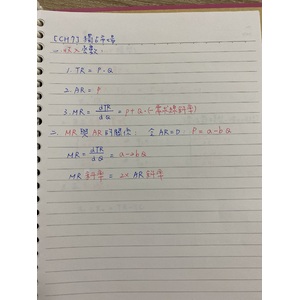 [CH7] 獨占市場
一、收入函數:
1. TR = P·Q
2. AR = P
3. MR = dTR/dQ = P + Q·(-需求線斜率)
二、MR與AR的關係: 令AR=D: P=a-bQ
MR = dTR/dQ = a-2bQ
MR斜率 = 2×AR斜率